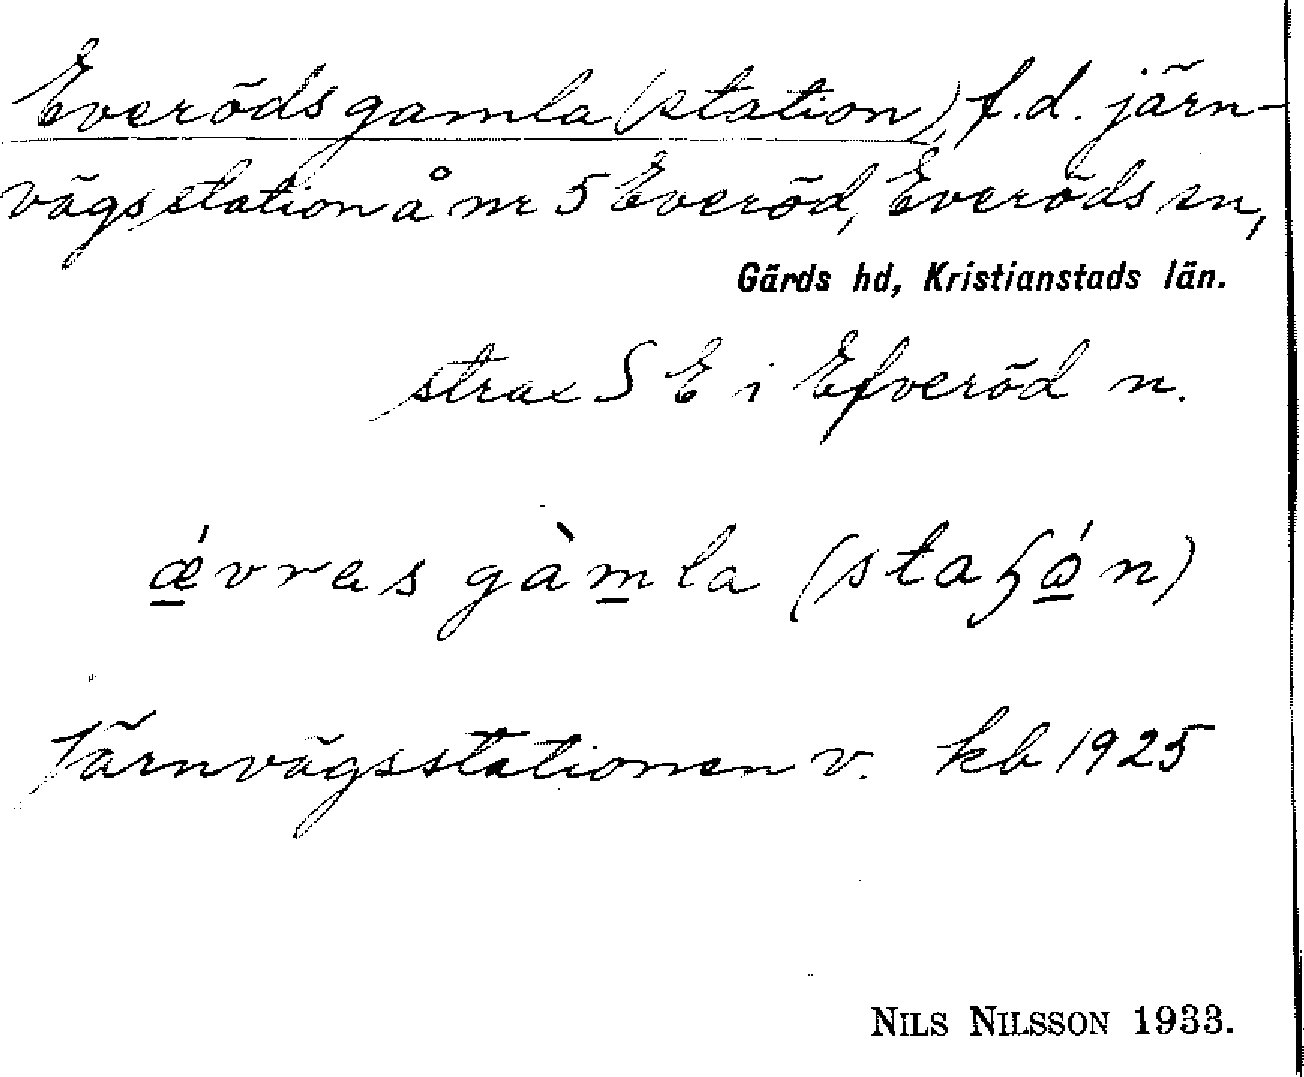 Everöds gamla (station), f.d. järn-
vägsstation å nr 5 Everöd, Everöds sn,
Gärds hd, Kristianstads län.
strax S E i Efveröd n.
ǽvras gàmla (staɧǿn)
Järnvägsstationen v. kb 1925
NILS NILSSON 1933.